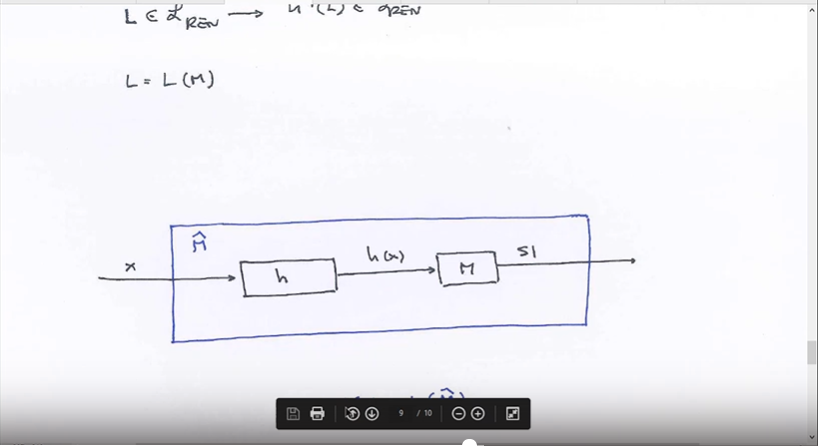 L ∈ ℒ_REN → h⁻¹(L) ∈ ℒ_REN
L = L(M)
M̂
x
h
h(x)
M
SI
(M̂)
9 / 10